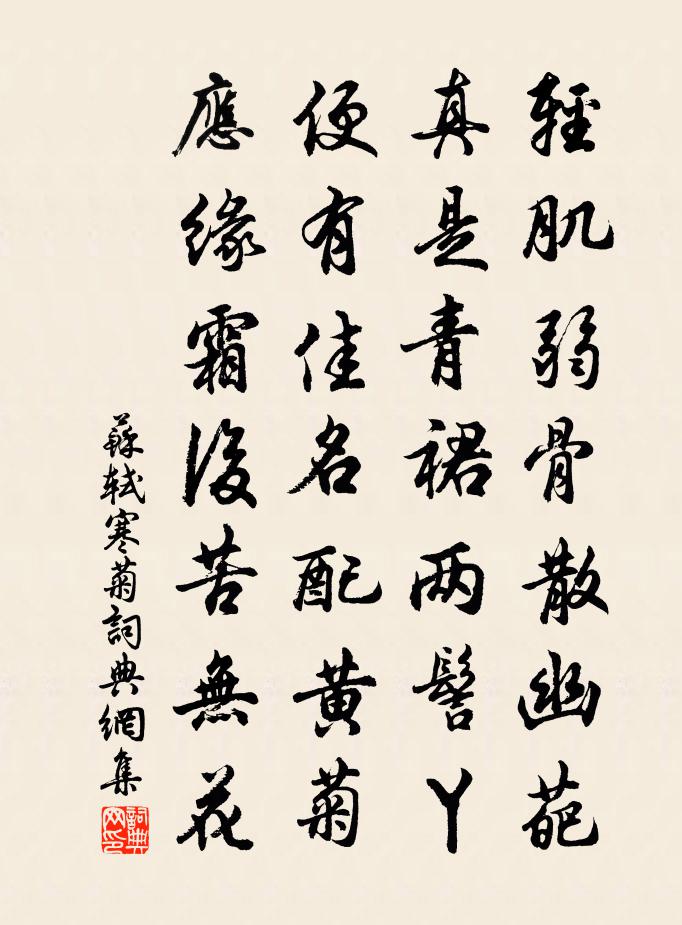 輕肌弱骨散幽葩
真是青裙两髻丫
便有佳名配黄菊
應緣霜後苦無花
蘇軾寒菊詞典網集
詞典网印